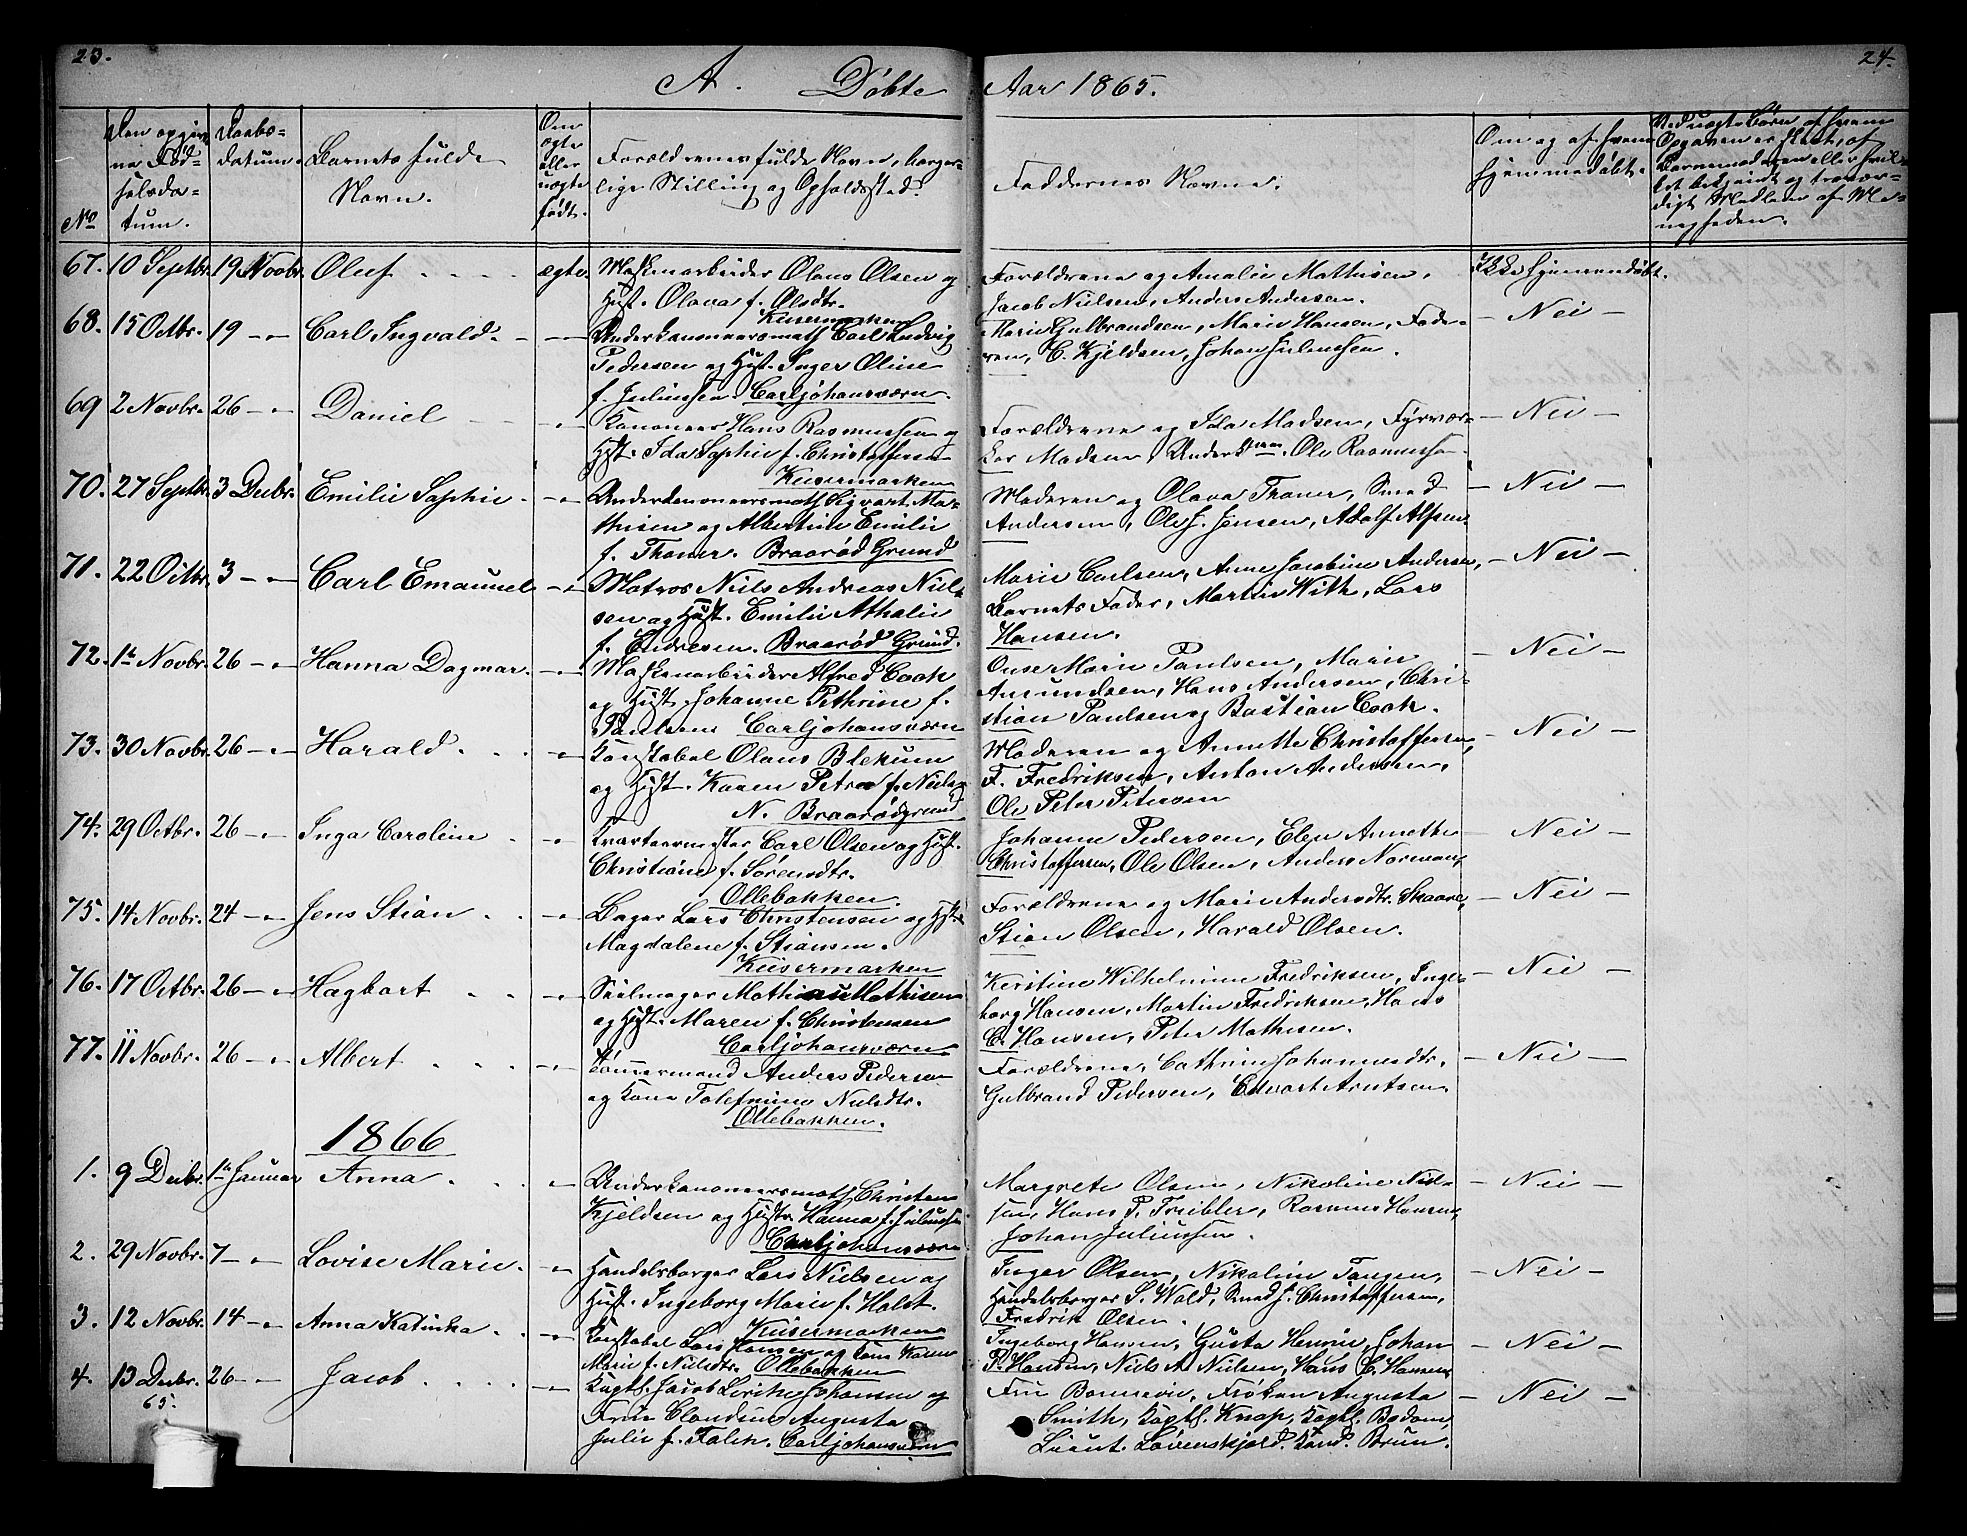 23.
A. Døbte
Aar 1865.
24.
No
Den opgiv-
ne Fød-
selsda-
tum.
Daabs-
datum.
Barnets fulde
Navn.
Om
ægte
eller
uægte
født.
Forældrenes fulde Navn, borger-
lige Stilling og Opholdssted.
Faddernes Navne.
Om og af hvem
hjemmedøbt.
Ved uægte Børn af hvem
Opgaven er skeet, af
Barnemoderen eller hvil-
ket bekjendt og trovær-
digt Medlem af Me-
nigheden.
67. 10 Septbr. 19 Novbr. Oluf ægte Maskinarbeider Olaus Olsen og
Hust. Olava f. Olsdtr.
Keisermarken
Forældrene og Amalie Mathisen,
Jacob Nielsen, Anders Andersen.
Ikke hjemmedøbt.
68. 15 Octbr. 19 -"- Carl Ingvald. -"- Underkanoneersmath Carl Ludvig
Pedersen og Hust. Inger Oline
f. Juliussen Carljohansværn.
Marie Gulbrandsen, Marie Hansen, Fade-
ren, C. Kjeldsen, Johan Juliussen.
- Nei -
69 2 Novbr. 26 -"- Daniel -"- Kanoneer Hans Rasmussen og
Hst. Ida Sophie f. Christoffersen
Keisermarken
Forældrene og Ida Madsen, Fyrvær-
ker Madsen, Underk. Ole Rasmussen.
- Nei -
70. 27 Septbr. 3 Decbr. Emilie Sophie. -"- Underkanoneersmath Sigvart Ma-
thisen og Albertine Emilie
f. Thoner. Braarød Grund
Moderen og Olava Thoner, Smed
Andersen, Ole J. Jensen, Adolf Alfsen.
- Nei -
71. 22 Octbr. 3 -"- Carl Emanuel -"- Matros Niels Andreas Niel-
sen og Hust. Emilie Athalie
f. Endresen. Braarød Grund.
Marie Carlsen, Anne Jacobine Andersen,
Barnets Fader, Martin With, Lars
Hansen.
- Nei -
72. 1te Novbr. 26 -"- Hanna Dagmar. -"- Maskinarbeider Alfred Cook
og Hust. Johanne Pethrine f.
Paulsen Carljohansværn
Ouse Marie Paulsen, Marie
Amundsen, Hans Andersen, Chri-
stian Paulsen og Bastian Cook.
- Nei -
73. 30 Novbr. 26 -"- Harald. -"- Konstabel Olaus Blekum
og Hust. Karen Petra f. Niels
N. Braarødgrund
Moderen og Annette Christoffersen,
F. Fredriksen, Anton Andersen,
Ole Peter Petersen
- Nei -
74. 29 Octbr. 26 -"- Inga Caroline -"- Kvarteermester Carl Olsen og Hust.
Christiane f. Sørensdtr.
Ollebakken.
Johanne Pedersen, Elen Annethe
Christoffersen, Ole Olsen, Anders Norman.
- Nei -
75. 14 Novbr. 24 -"- Jens Stian -"- Bager Lars Christensen og Hst.
Magdalene f. Stiansen.
Keisermarken
Forældrene og Marie Andersdtr. Skaare,
Stian Olsen, Harald Olsen.
- Nei -
76. 17 Octbr. 26 -"- Hagbart -"- Seilmager Mathias Mathisen
og Hst. Maren f. Christensen
Carljohansværn.
Kerstine Wilhelmine Fredriksen, Inge-
borg Hansen, Martin Fredriksen, Hans
C. Hansen, Peter Mathisen.
- Nei -
77. 11 Novbr. 26 -"- Albert -"- Tømmermand Anders Pedersen
og Kone Tolefmine Nielsdtr.
Ollebakken.
Forældrene, Cathrine Johannesdtr.
Gulbrand Pedersen, Edvart Arntsen.
- Nei -
1866
1. 9 Decbr. 1te Januar Anna -"- Underkanoneersmath Christen
Kjeldsen og Hustr. Hanna f. Juliussen
Carljohansværn
Margrete Olsen, Nikoline Niel-
sen, Hans P. Treibler, Rasmus Hansen,
Johan Juliussen.
- Nei -
2. 29 Novbr. 7 -"- Lovise Marie. -"- Handelsborger Lars Nielsen og
Hust. Ingeborg Marie f. Holst.
Keisermarken
Inger Olsen, Nikoline Tangen,
Handelsborger S. Wold, Smed J. Christoffersen,
Fredrik Olsen.
- Nei -
3. 12 Novbr. 14 -"- Anna Katinka -"- Konstabel Lars Hansen og Kone Karen
Marie f. Nielsdtr. Ollebakken
Ingeborg Hansen, Gusta Henrie, Johan
P. Hansen, Niels A. Nielsen, Hans C. Hansen.
- Nei -
4. 13 Decbr. 65. 26 -"- Jacob -"- Kaptl. Jacob Lerche Johansen og
Frue Claudine Augusta
Julie f. Falch. Carljohansværn
Frue Bonnevie, Frøken Augusta
Smith, Kaptl. Knap, Kaptl. Bodom,
Lieut. Løvenskjold, Kand. Brun.
- Nei -